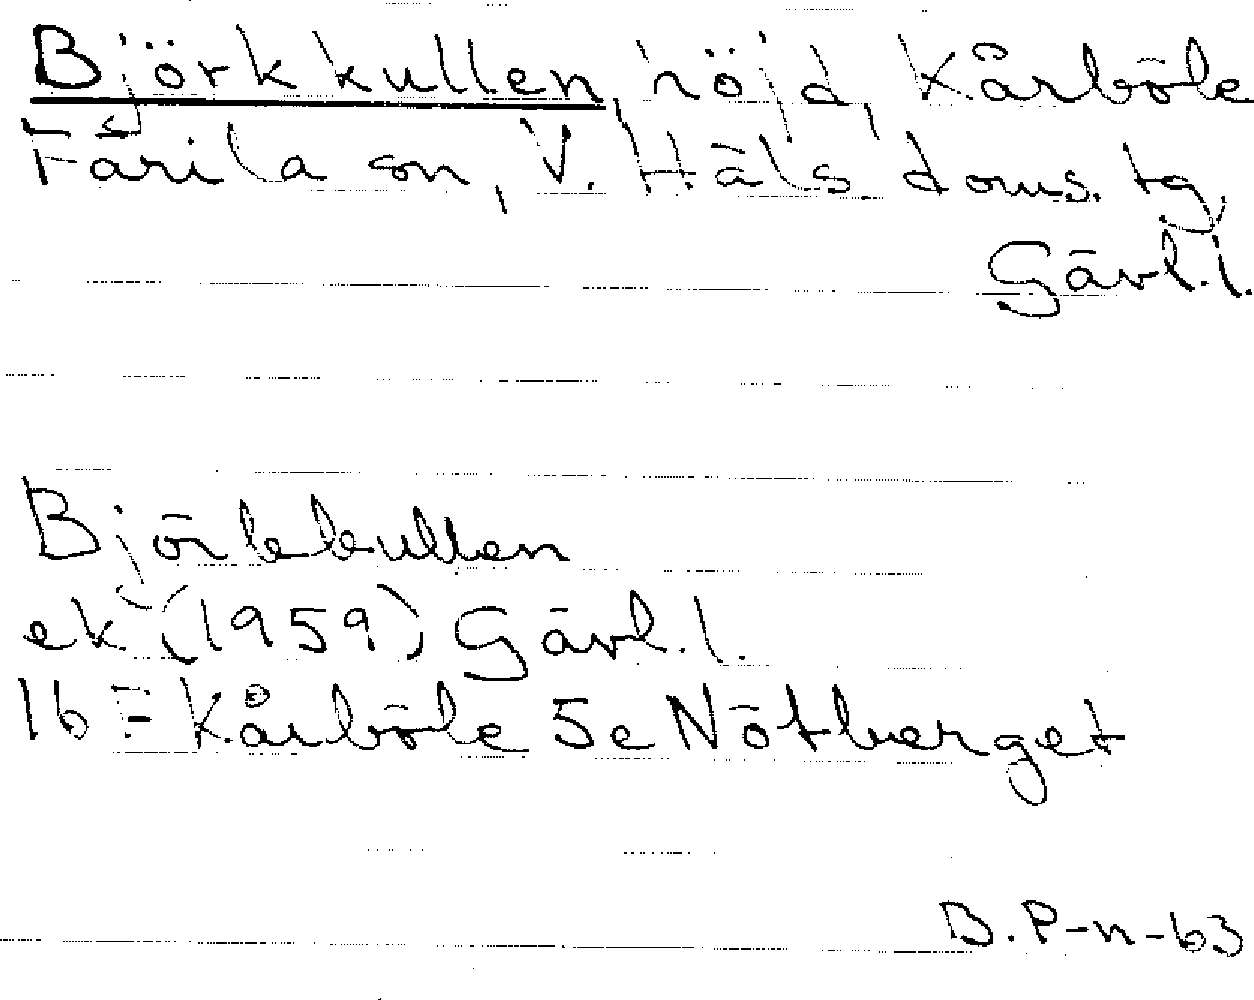 Björkkullen, höjd, Kårböle
Färila sn, V. Häls doms. tg,
Gävl.l.
Björkkullen
ek (1959) Gävl.l.
16 Kårböle 5e Nötberget
B.P-n-63